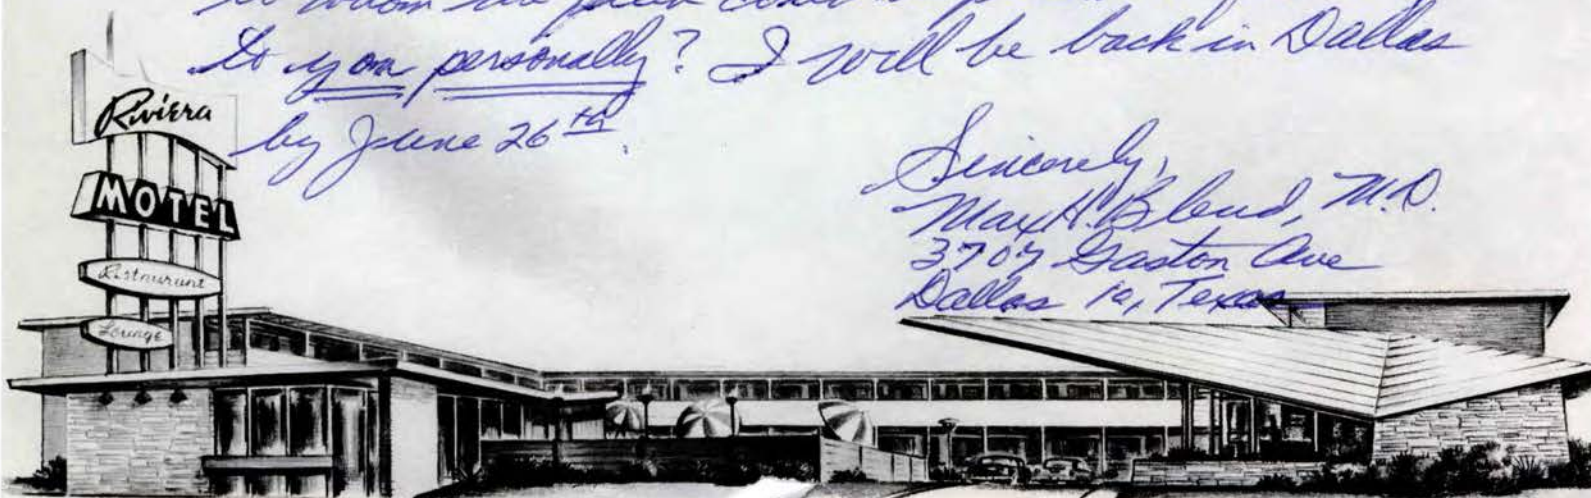 to whom
to you personally? I will be back in Dallas
by June 26th.
Sincerely,
Max H. Blend, M.D.
3707 Gaston Ave
Dallas 10, Texas
Riviera
MOTEL
Restaurant
Lounge